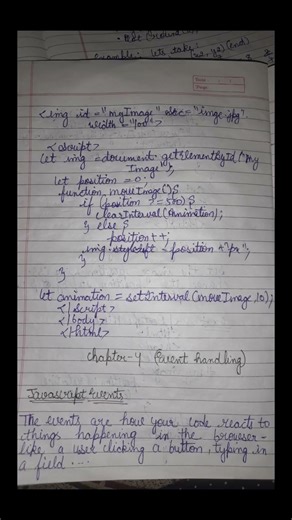 Example: let's take:
<img id="myImage" src="imge.jpg"
width="100">
<script>
let img = document.getElementById("my
Image");
let position = 0;
function moveImage(){
if (position >= 500){
clearInterval(Animation);
} else {
position++;
img.style.left = position + "px";
}
}
let animation = setInterval(moveImage, 10);
</script>
</body>
</html>
chapter-4 (Event handling)
Javascript Events
The events are how your code reacts to
things happening in the browser-
like a user clicking a button, typing in
a field...